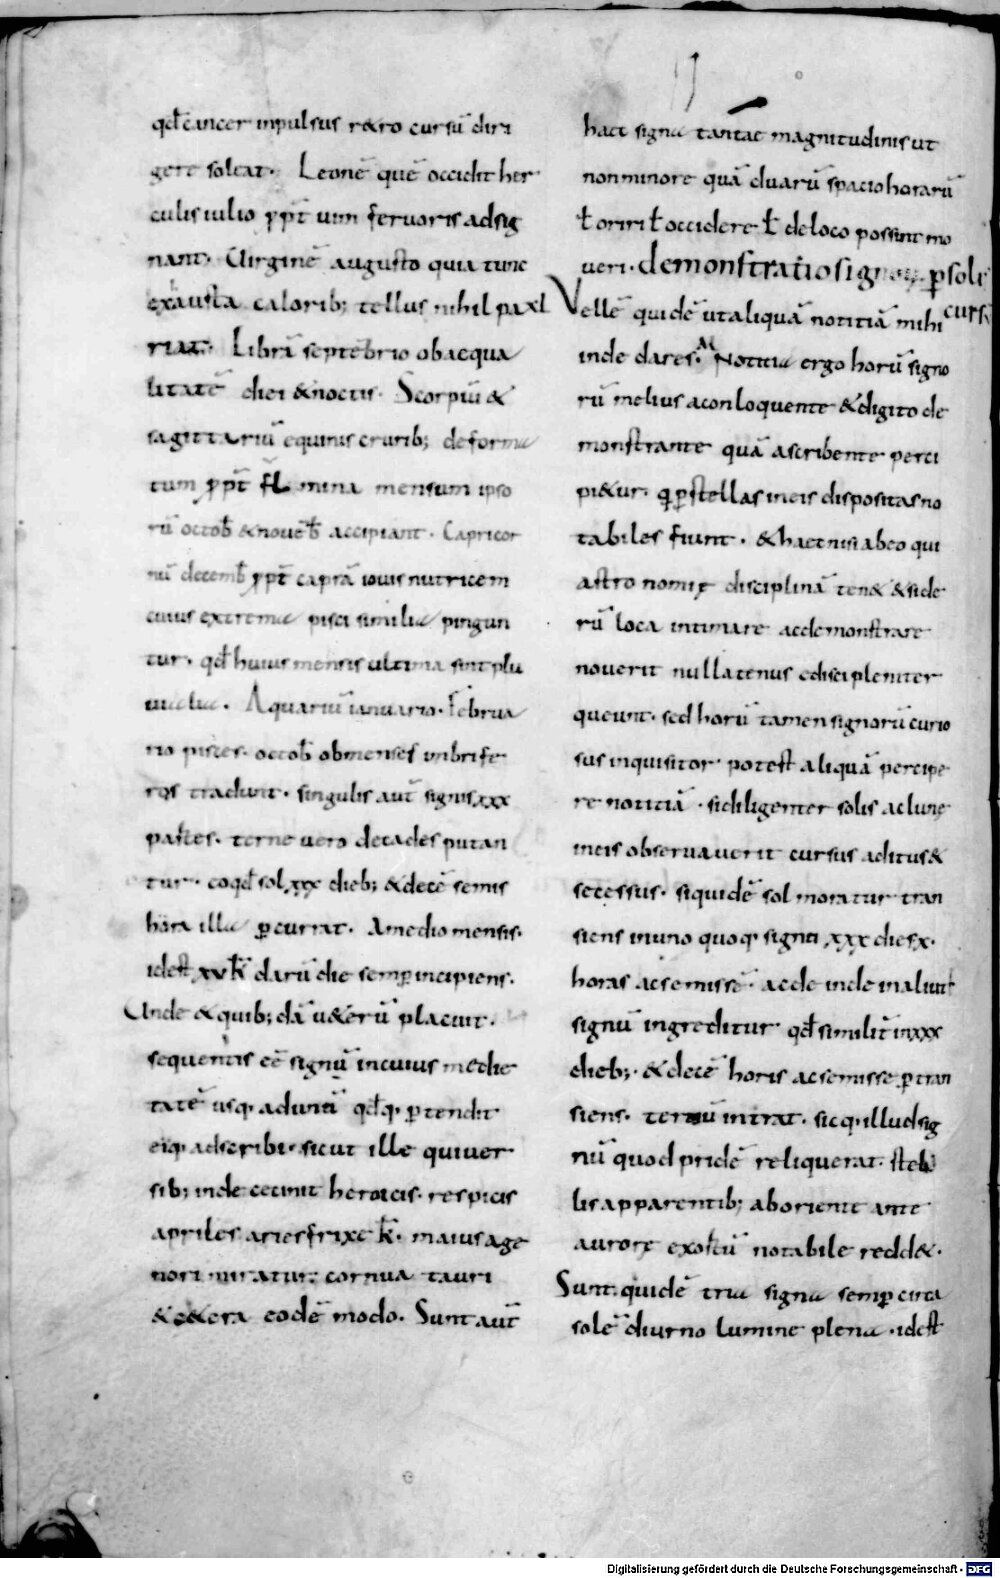 qd̄ cancer inpulsus r&ro cursū diri
gere soleat. Leonē quē occidit her
culis iulio ꝓpt̄ uim feruoris adsig
nant. Uirginē augusto quia tunc
exausta calorib; tellus nihil pa
riat. Librā septēbrio ob aequa
litatē diei &noctis. Scorpiū &
sagittariū equinis crurib; deforma
tum ꝓpt̄ mina mensum ipso
rū octob̄ &nouēb̄ accipiant. Capricor
nū decemb̄ ꝓpt̄ caprā iouis nutricem
cuius extrema pisci similia pingun
tur. qd̄ huius mensis ultima sint plu
uialia. Aquariū ianuario. Februa
rio pisces. octob̄ ob menses imbrife
ros tradunt. singulis aut̄ signis xxx
partes. terne uero decades putan
tur. eo qd̄ sol xxx dieb; &decē semis
hora illa ꝑcurrat. A medio mensis.
id est xv k̄ darū die semꝑ incipiens.
Unde &quib;dā u&erū placuit.
sequentis eē signū in cuius medie
tatē usq. aduntū qd̄q. ꝑtendit
eiq. adscribi. sicut ille qui uer
sib; inde cecinit heroicis. respicis
apriles aries frixe k̄. maius age
nori miratur cornua tauri
&c&era eodē modo. Sunt aut̄
haec signa tantae magnitudinis ut
non minore quā duarū spacio horarū
ł oriri ł occidere ł de loco possint mo
ueri. demonstratio signorū ꝑ solis
cursū
Vellē quidē ut aliquā notitiā mihi
inde dares. M Notitia ergo horū signo
rū melius a conloquente &digito de
monstrante quā ascribente perci
pi&ur. q̄ ꝑ stellas in eis dispositas no
tabiles fiunt. &haec nisi ab eo qui
astronomię disciplinā ten& &side
rū loca intimare ac demonstrare
nouerit nullatenus edisci pleniter
queunt. sed horū tamen signorū curio
sus inquisitor potest aliquā percipe
re notitiā. si diligenter solis ac lunę
in eis obseruauerit cursus aditus &
secessus. siquidē sol moratur tran
siens in uno quoq. signo xxx dies x.
horas ac semissē. ac de inde in aliud
signū ingreditur qd̄ similit̄ in xxx
dieb;. &decē horis ac semisse ꝑtran
siens. tertiū intrat. sicq. illud sig
nū quod pridē reliquerat. stel
lis apparentib; ab orient ante
aurorę exortū notabile redd&.
Sunt quidē tria signa semꝑ circa
solē diurno lumine plena. id est
Digitalisierung gefördert durch die Deutsche Forschungsgemeinschaft - DFG